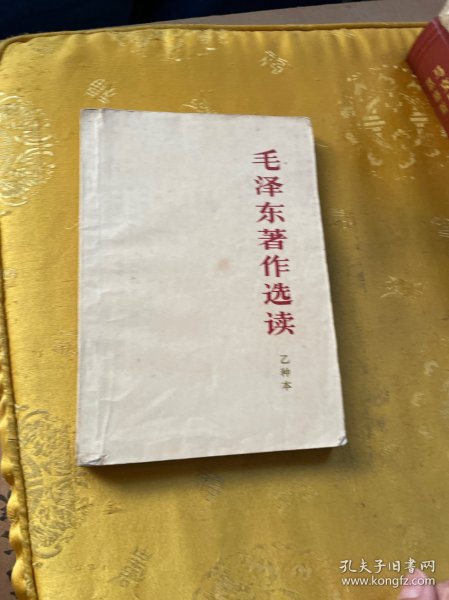 毛泽东著作选读
乙种本
孔夫子旧书网
www.kongfz.com